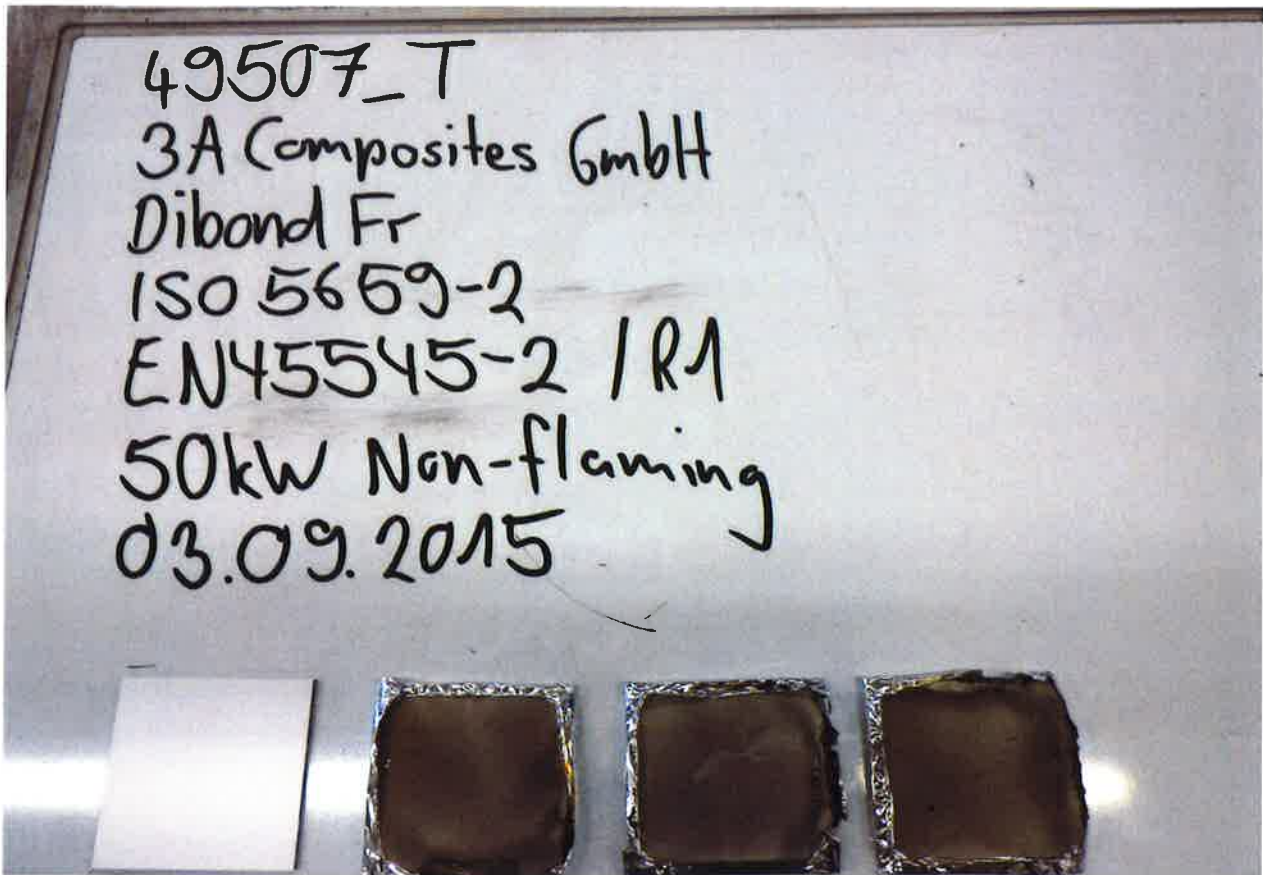 49507_T
3A Composites GmbH
Dibond Fr
ISO 5659-2
EN45545-2 / R1
50kW Non-flaming
03.09.2015